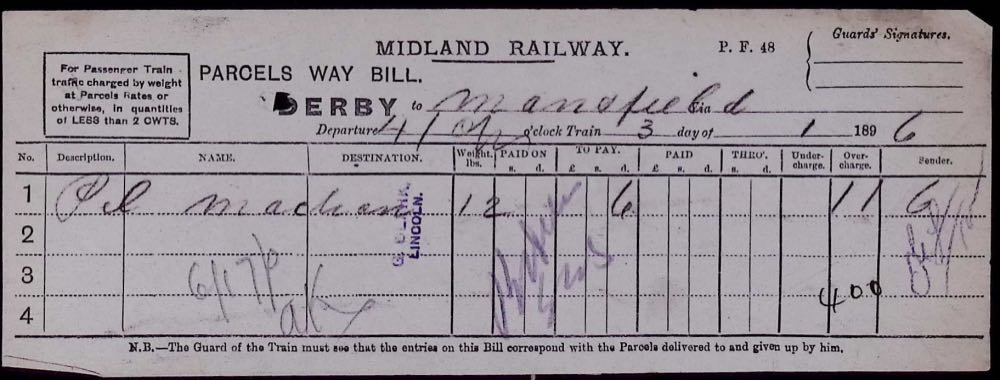 MIDLAND RAILWAY.
P. F. 48
Guards' Signatures.
For Passenger Train
traffic charged by weight
at Parcels Rates or
otherwise, in quantities
of LESS than 2 CWTS.
PARCELS WAY BILL.
DERBY to Mansfield Via
Departure 4/ o'clock Train 3 day of 1 1896
No. Description. NAME. DESTINATION. Weight. lbs. PAID ON s. d. TO PAY. £ s. d. PAID £ s. d. THRO'. s. d. Under-charge. Over-charge. Sender.
1 Pcl 12 6 11 6
G. CLARK.
LINCOLN.
2
3 400
4
N.B.—The Guard of the Train must see that the entries on this Bill correspond with the Parcels delivered to and given up by him.